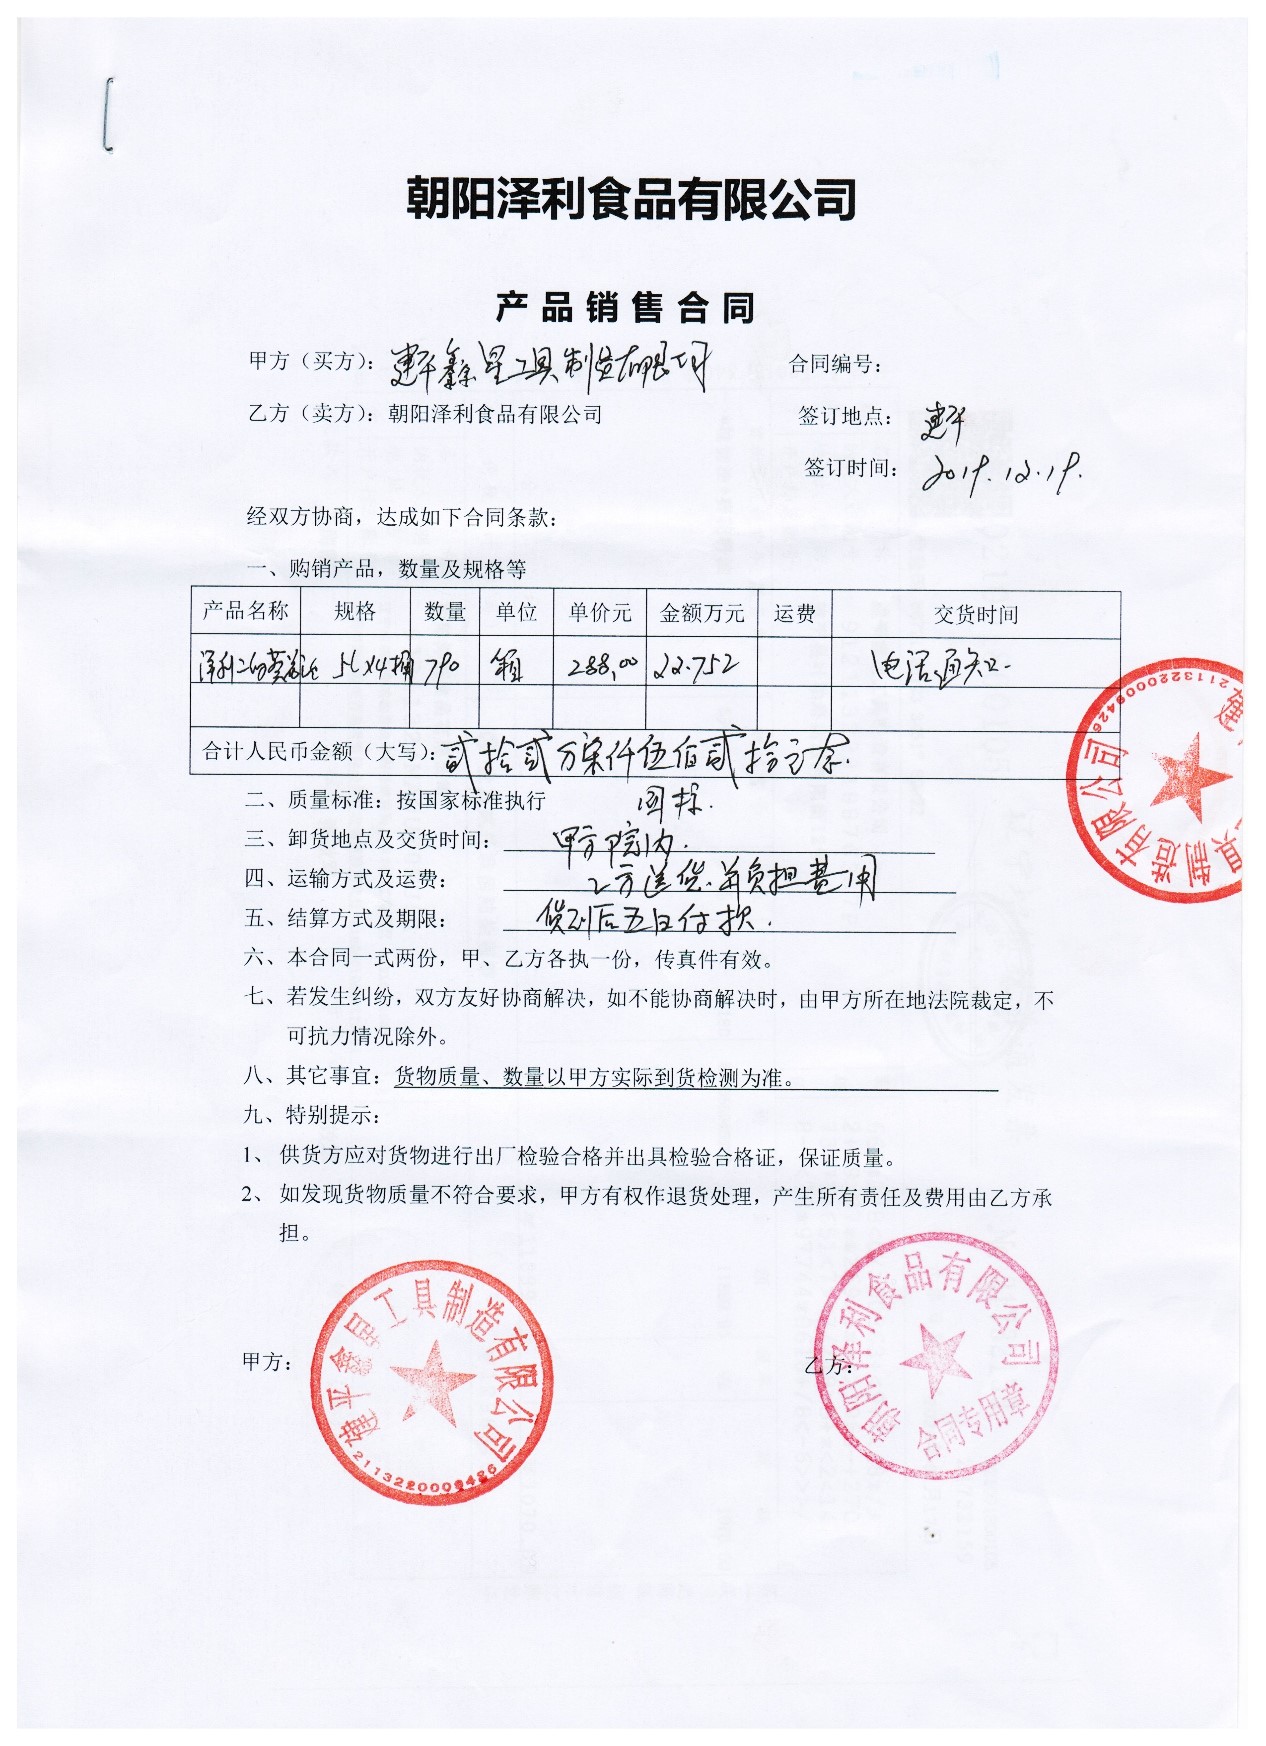 朝阳泽利食品有限公司
产品销售合同
甲方（买方）：建平鑫星工具制造有限公司 合同编号：
乙方（卖方）：朝阳泽利食品有限公司 签订地点：建平
签订时间：2019.12.19.
经双方协商，达成如下合同条款：
一、购销产品，数量及规格等
产品名称 规格 数量 单位 单价元 金额万元 运费 交货时间
泽利 5L×4桶 790 箱 288.00 22.752 电话通知.
合计人民币金额（大写）：贰拾贰万柒仟伍佰贰拾元
二、质量标准：按国家标准执行 国标.
三、卸货地点及交货时间：甲方院内.
四、运输方式及运费：乙方送货.并负担费用
五、结算方式及期限：货到后五日付款.
六、本合同一式两份，甲、乙方各执一份，传真件有效。
七、若发生纠纷，双方友好协商解决，如不能协商解决时，由甲方所在地法院裁定，不
可抗力情况除外。
八、其它事宜：货物质量、数量以甲方实际到货检测为准。
九、特别提示：
1、供货方应对货物进行出厂检验合格并出具检验合格证，保证质量。
2、如发现货物质量不符合要求，甲方有权作退货处理，产生所有责任及费用由乙方承
担。
甲方： 乙方：
建平鑫星工具制造有限公司
2113220009426
朝阳泽利食品有限公司
合同专用章
建
具制造有限公司
2113220009426